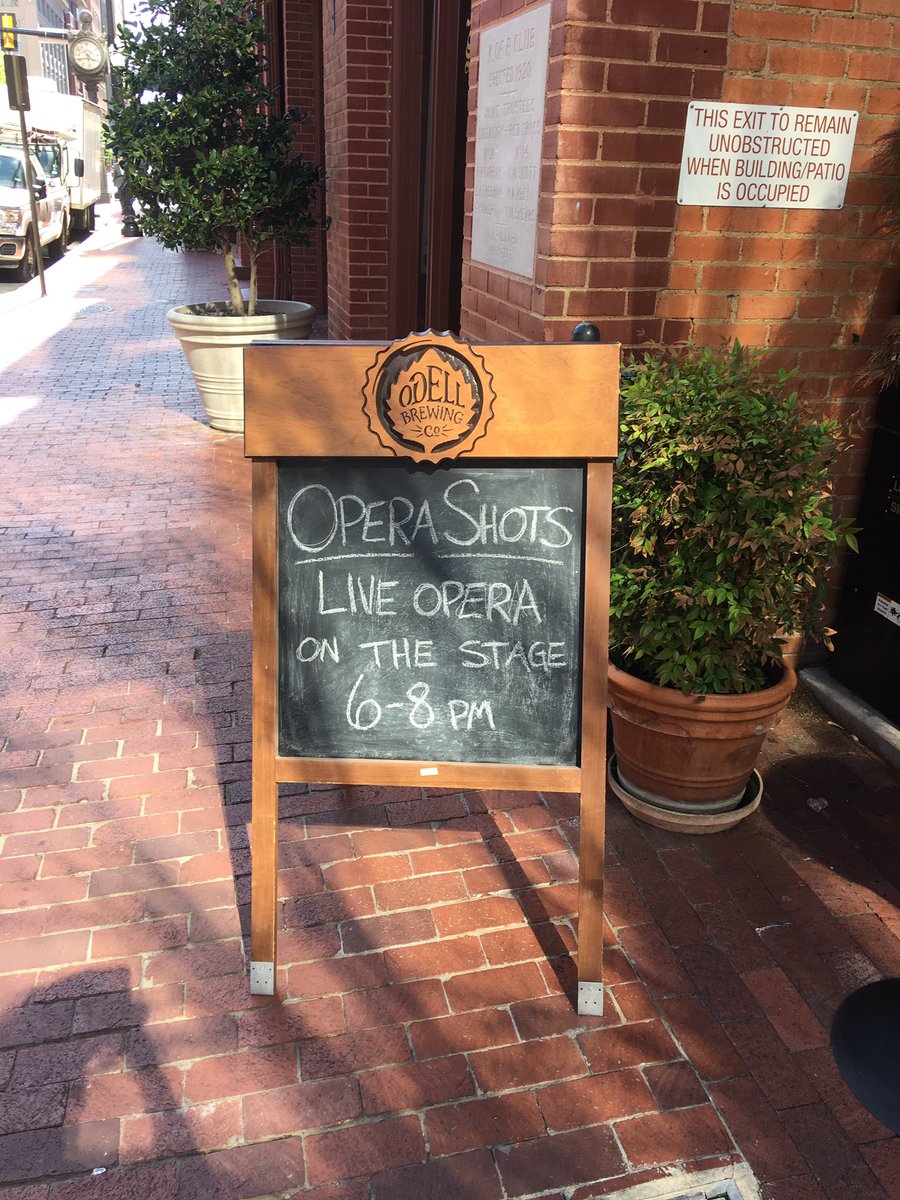 K OF P CLUB
ERECTED 1920
THIS EXIT TO REMAIN
UNOBSTRUCTED
WHEN BUILDING/PATIO
IS OCCUPIED
ODELL
BREWING
CO
OPERA SHOTS
LIVE OPERA
ON THE STAGE
6-8 PM